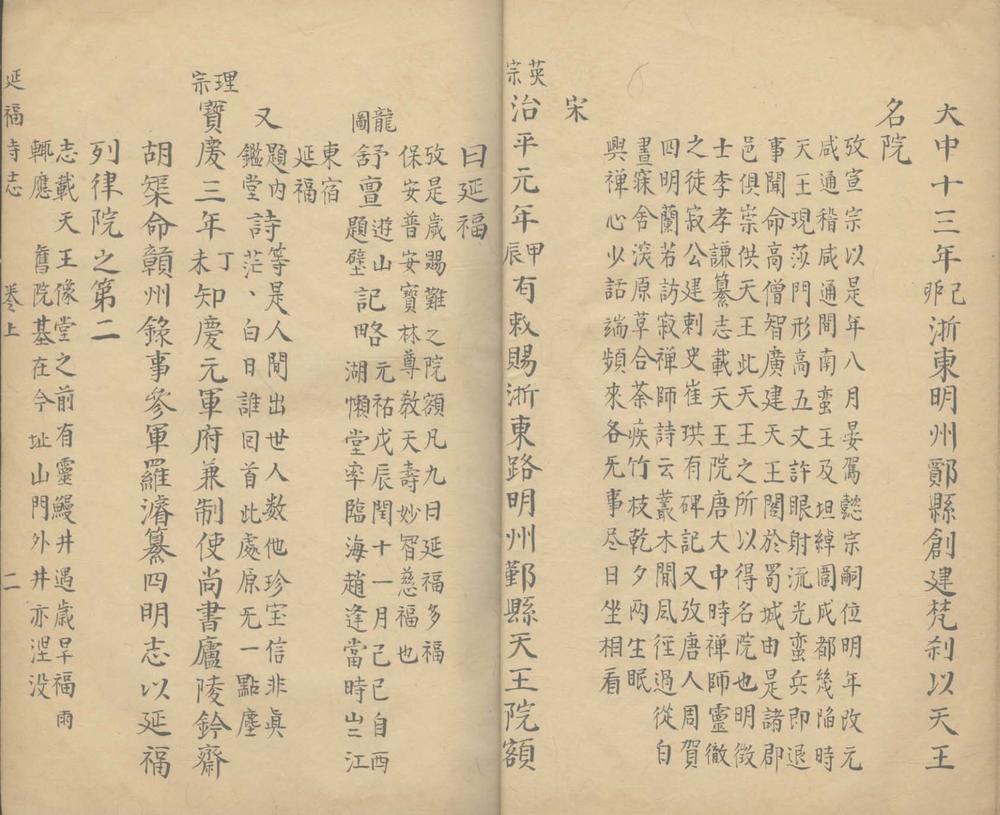 大中十三年己卯浙東明州鄮縣創建梵刹以天王
名院
攷宣宗以是年八月晏駕懿宗嗣位明年改元
咸通稽咸通間南蛮王及坦綽圍成都幾陷時
天王現莎門形高五丈許眼射流光蛮兵即退
事聞命高僧智廣建天王閣於蜀城由是諸郡
邑俱崇供天王此天王之所以得名院也明徵
士李孝謙纂志載天王院唐大中時禅師靈徹
之徒寂公建刺史崔珙有碑記又攷唐人周賀
四明蘭若訪寂禅師詩云叢木閒風徑過從白
晝寐舍淡原草合茶疾竹枝乾夕两生眠
興禅心少話端頻來各旡事尽日坐相看
宋
英宗治平元年甲辰有敕賜浙東路明州鄞縣天王院額
曰延福
攷是歲賜難之院額凡九曰延福多福
保安普安寶林尊敎天壽妙智慈福也
龍圖舒亶遊山題壁記略元祐戊辰閏十一月己巳自西
湖懶堂率臨海趙逢當時江
東宿
延福
又題内鑑堂詩等是人間出世人数他珍宝信非眞
茫、白日誰回首此處原旡一點塵
理宗寶慶三年丁未知慶元軍府兼制使尚書廬陵鈐齋
胡榘命贛州錄事參軍羅濬纂四明志以延福
列律院之第二
志載天王像堂之前有靈鰻井遇歲旱禱雨
輒應舊院基在今址山門外井亦湮没
延福寺志 卷上 二